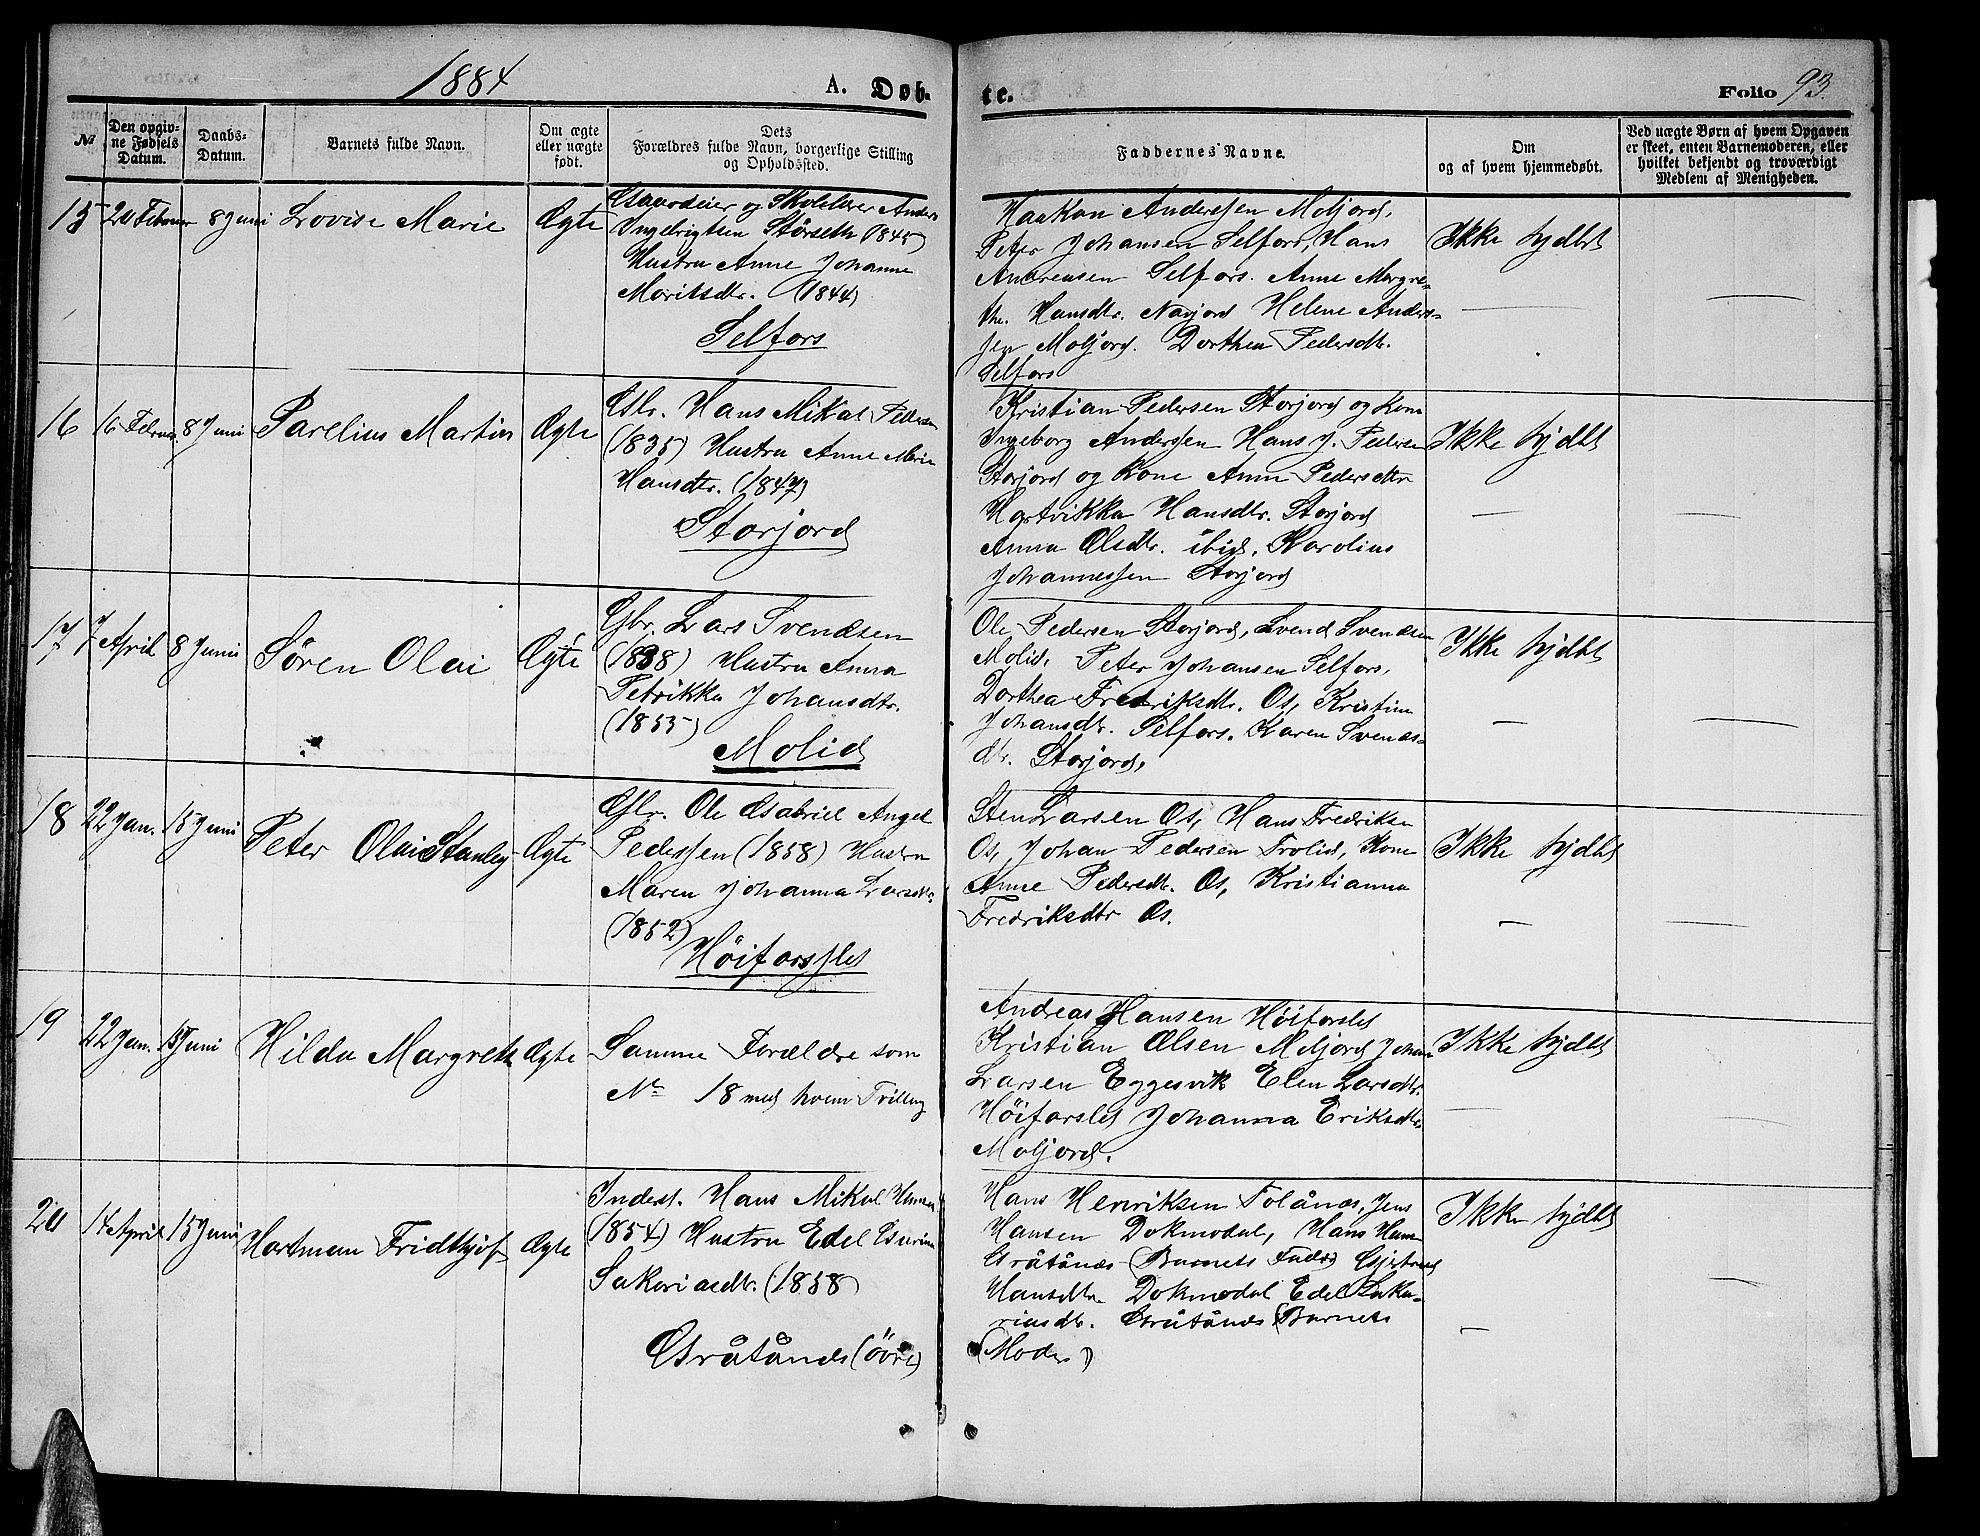 1884
A. Døb-
te.
Folio 93.
№
Den opgiv-
ne Fødsels
Datum.
Daabs-
Datum.
Barnets fulde Navn.
Om ægte
eller uægte
født.
Dets
Forældres fulde Navn, borgerlige Stilling
og Opholdssted.
Faddernes Navne.
Om
og af hvem hjemmedøbt.
Ved uægte Børn af hvem Opgaven
er skeet, enten Barnemoderen, eller
hvilket bekjendt og troværdigt
Medlem af Menigheden.
15 20 Februar 8 Juni Lovise Marie Ægte
Gaardeier og Skolelærer Anders
Ingebrigtsen Störseth (1845)
Hustru Anne Johanne
Moritsdtr. (1844)
Selfors
Haakon Anderssen Moljord,
Peter Johansen Selfors, Hans
Andreasen Selfors. Anne Margre-
the Hansdtr. Navjord Helene Anders-
sen Moljord. Dorthea Pedersdtr.
Selfors
Ikke hjdbt
16 16 Februar 8 Juni Parelius Martin Ægte
Gbr. Hans Mikal Pedersen
(1835) Hustru Anne Marie
Hansdtr. (1847)
Storjord
Kristian Pedersen Storjord og Kone
Ingeborg Anderssen Hans J. Pedersen
Storjord og Kone Anne Pedersdtr
Hartvikka Hansdtr. Storjord
Anna Olsdtr. ibid. Karolius
Johannessen Storjord
Ikke hjdbt
17 7 April 8 Juni Sören Olai Ægte
Gbr. Lars Svendsen
(1838) Hustru Anna
Petrikka Johansdtr.
(1855)
Molid
Ole Pedersen Storjord, Svend Svendsen
Molid, Peter Johansen Selfors,
Dorthea Fredriksdtr. Os, Kristine
Johansdtr. Selfors. Karen Svends-
dtr. Storjord,
Ikke hjdbt
18 22 Jan. 15 Juni Peter Olai Stanley Ægte
Gbr. Ole Gabriel Angel
Pederssen (1858) Hustru
Maren Johanna Larsdtr.
(1852)
Höiforsslet
Sten Larsen Os, Hans Fredriksen
Os, Johan Pedersen Trolid, Kone
Anne Pedersdtr. Os, Kristianna
Fredriksdtr Os.
Ikke hjdbt
19 22 Jan. 15 Juni Hilda Margrete Ægte
Samme Forældre som
No 18 med hvem Tvilling
Andreas Hansen Höiforslet
Kristian Olsen Moljord Johan
Larsen Eggesvik Elen Larsdtr.
Höiforslet Johanna Eriksdtr.
Moljord.
Ikke hjdbt
20 14 April 15 Juni Hartman Fridthjof Ægte
Inderst. Hans Mikal Hansen
(1854) Hustru Edel Esarina
Sakariasdtr. (1858)
Gråtånes (övre)
Hans Henriksen Tolånes, Jens
Hansen Dokmodal, Hans Hansen
Gråtånes (Barnets Fader) Gjertrud
Hansdtr Dokmodal Edel Saka-
riasdtr. Gråtånes (Barnets
(Moder)
Ikke hjdbt